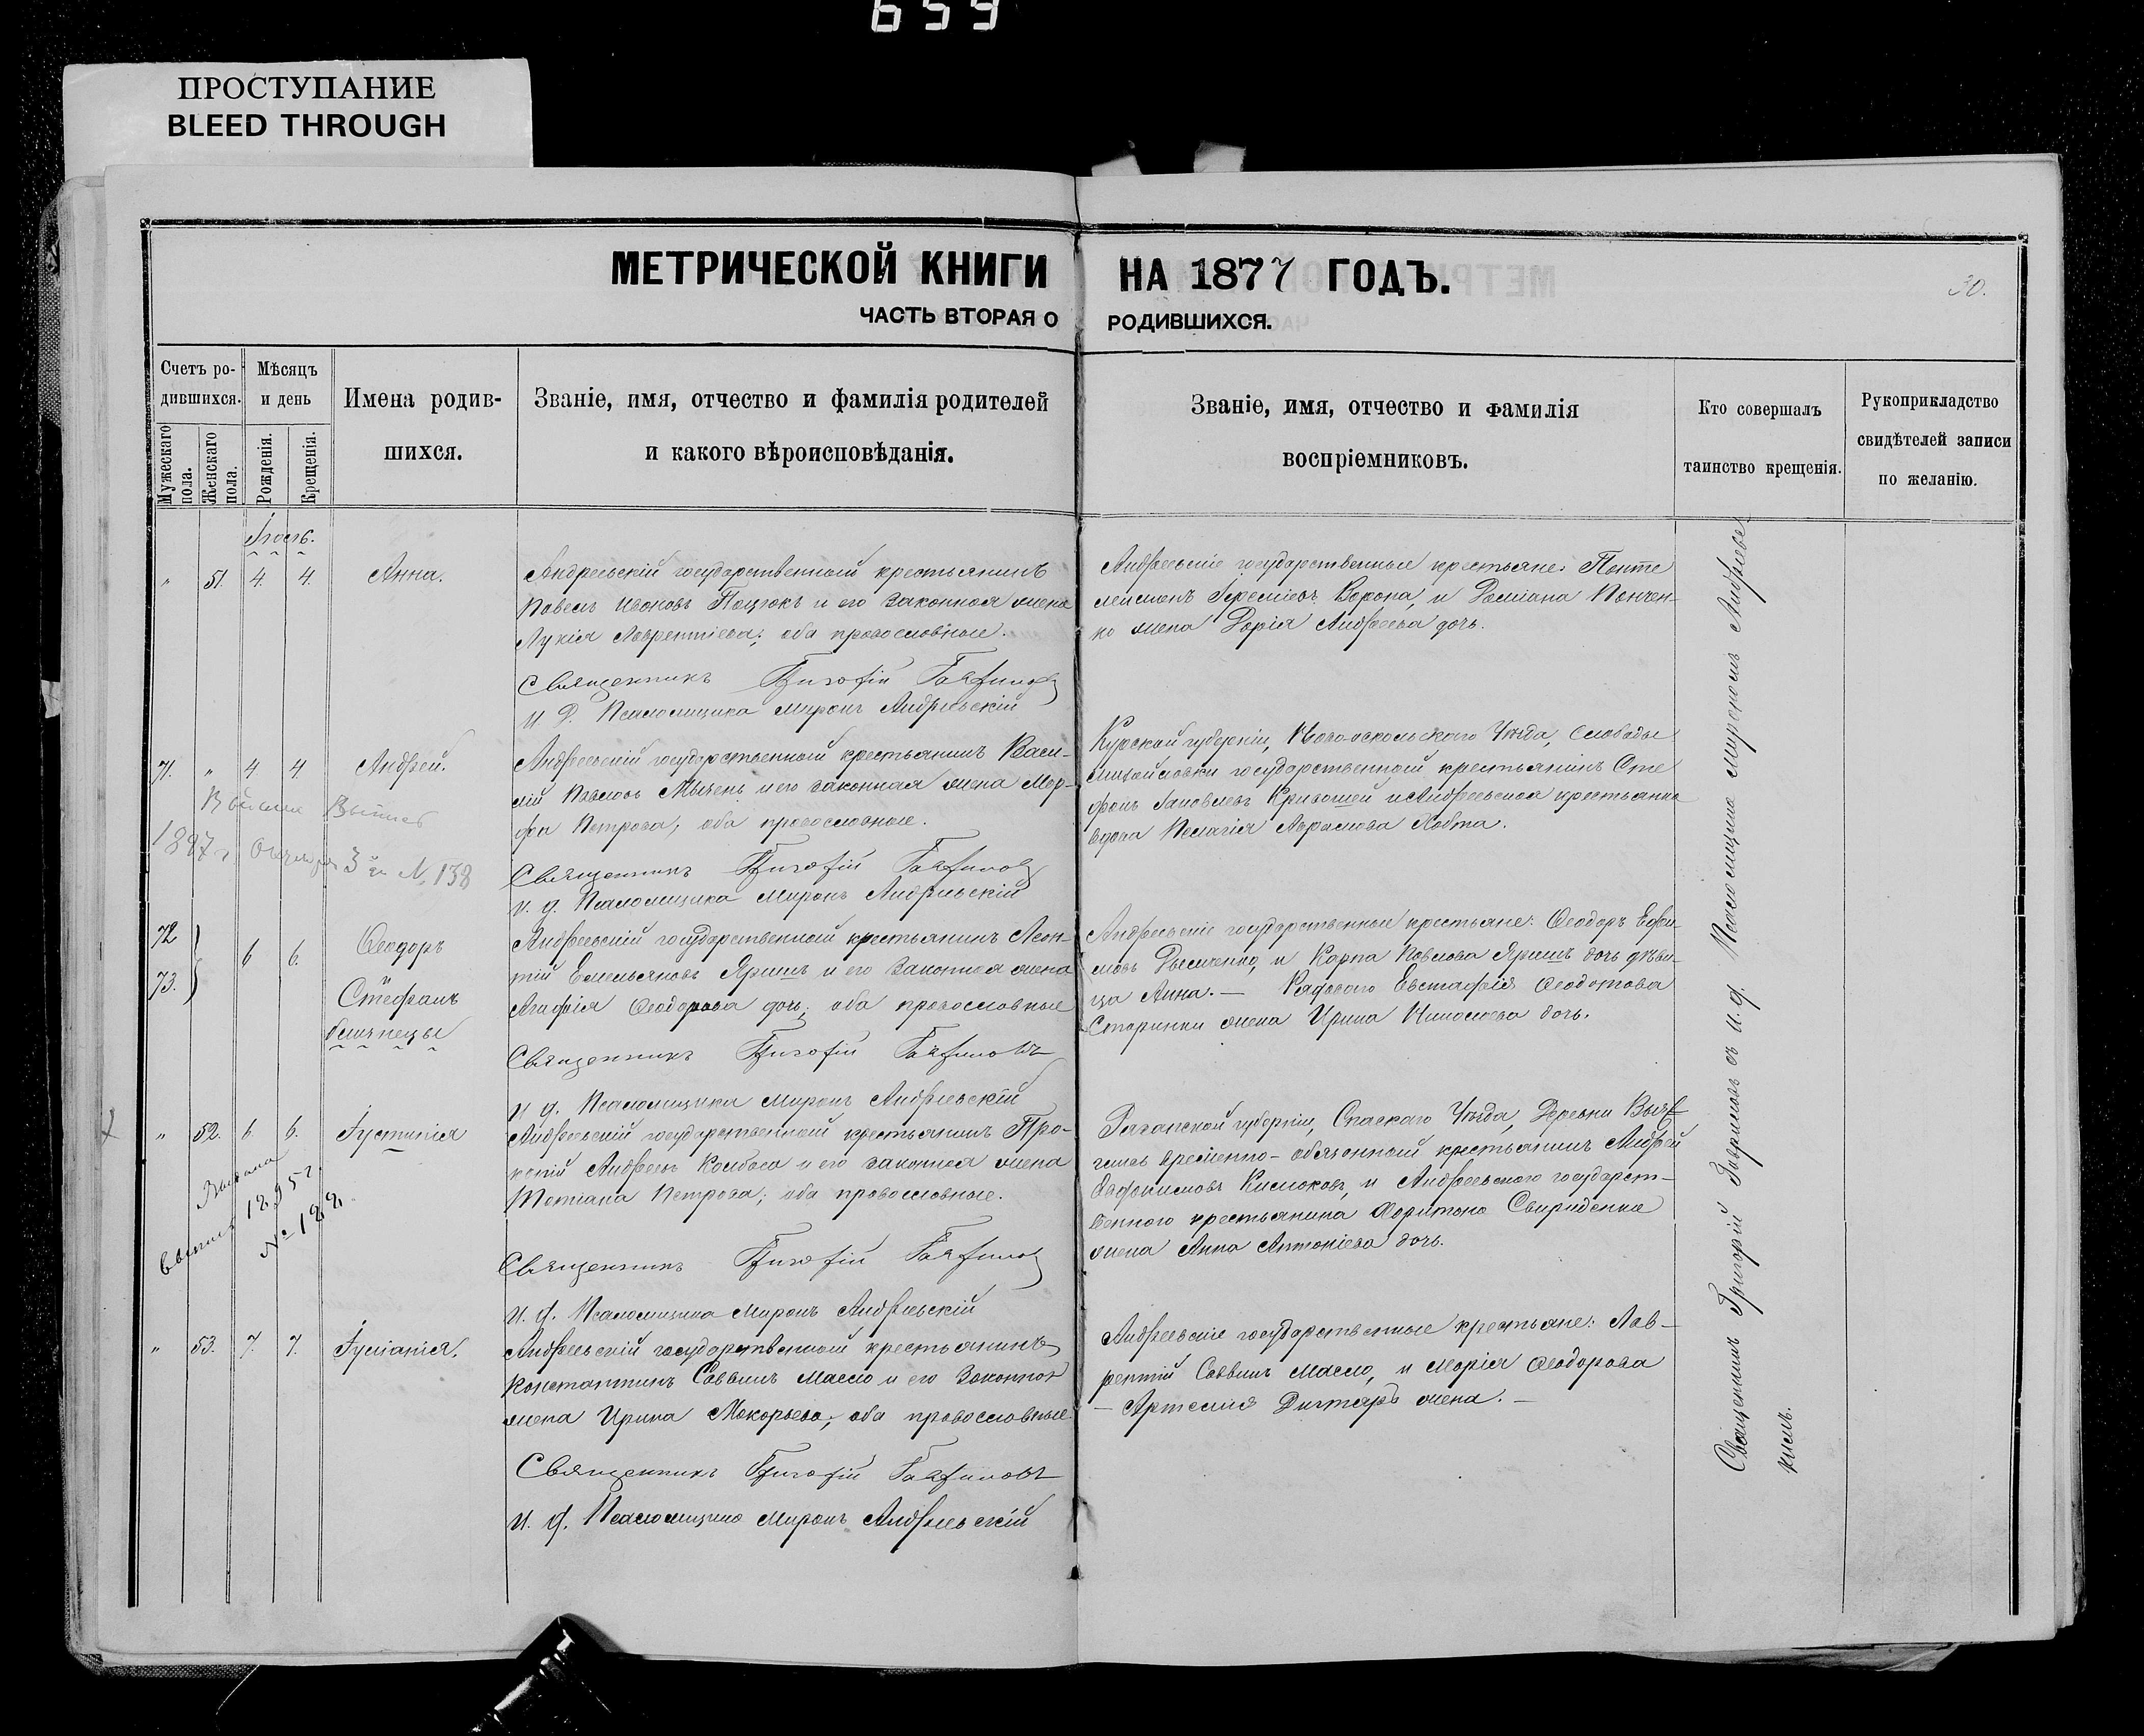 659
ПРОСТУПАНИЕ
BLEED THROUGH
МЕТРИЧЕСКОЙ КНИГИ НА 1877 ГОДЪ.
30.
ЧАСТЬ ВТОРАЯ О РОДИВШИХСЯ.
Счетъ ро-
дившихся.
Мужескаго пола.
Женскаго пола.
Мѣсяцъ
и день
Рожденія.
Крещенія.
Имена родив-
шихся.
Званіе, имя, отчество и фамилія родителей
и какого вѣроисповѣданія.
Званіе, имя, отчество и фамилія
воспріемниковъ.
Кто совершалъ
таинство крещенія.
Рукоприкладство
свидѣтелей записи
по желанію.
" 51. 4. 4. Анна.
Андреевскій государственный крестьянинъ
Павелъ Ивановъ Пацюкъ и его законная жена
Лукія Лаврентіева; оба православные.
Священникъ Григорій Гавриловъ
И Д. Псаломщика Миронъ Андріевскій
Андреевскіе государственные крестьяне: Панте
леимонъ Іереміевъ Ворона, и Даміана Панчен-
ко жена Дарія Андреева дочь.
71. " 4 4 Андрей.
1897 г. 3 № 138
Андреевскій государственный крестьянинъ Васи-
лій Павловъ и его законная жена Мар-
фа Петрова; оба православные.
Священникъ Григорій Гавриловъ
и. д. Псаломщика Миронъ Андріевскій
Курской губерніи, Ново-оскольскаго Уѣзда, слободы
Михайловки государственный крестьянинъ Сте
фанъ Іаковлевъ Кривошей и Андреевская крестьянка
вдова Пелагія Аврамова
72
73.
6 6.
Ѳеодоръ
и
Стефанъ
близнецы
Андреевскій государственный крестьянинъ Леон-
тій Емельяновъ Яришъ и его законная жена
Агафія Ѳеодорова дочь; оба православные
Священникъ Григорій Гавриловъ
и д. Псаломщика Миронъ Андріевскій
Андреевскіе государственные крестьяне: Ѳеодоръ Ефи-
мовъ и Карпа Павлова Яришъ дочь дѣви-
ца Анна. — Рядоваго Евстафія Ѳеодотова
жена Ирина Николаева дочь.
" 52. 6. 6. Іустинія
Выдана
выпись 1895 г.
№ 122
Андреевскій государственный крестьянинъ Про-
копій Андреевъ и его законная жена
Татіана Петрова; оба православные.
Священникъ Григорій Гавриловъ
и. д. Псаломщика Миронъ Андріевскій
Рязанской губерніи, Спаскаго Уѣзда, Деревни
временно-обязанный крестьянинъ Андрей
Евфимовъ и Андреевскаго государст-
веннаго крестьянина Харитона Свириденка
жена Анна Антоніева дочь.
" 53. 7. 7. Іуліанія.
Андреевскій государственный крестьянинъ
Константинъ Саввинъ Масло и его законная
жена Ирина Макарьева; оба православные
Священникъ Григорій Гавриловъ
и. д. Псаломщика Миронъ Андріевскій
Андреевскіе государственные крестьяне: Лав-
рентій Саввинъ Масло, и Марія Ѳеодорова
— Артемія Дигтяря жена. —
Священникъ Григорій Гавриловъ съ и. д. Псаломщика Мирономъ Андріевс
кимъ.